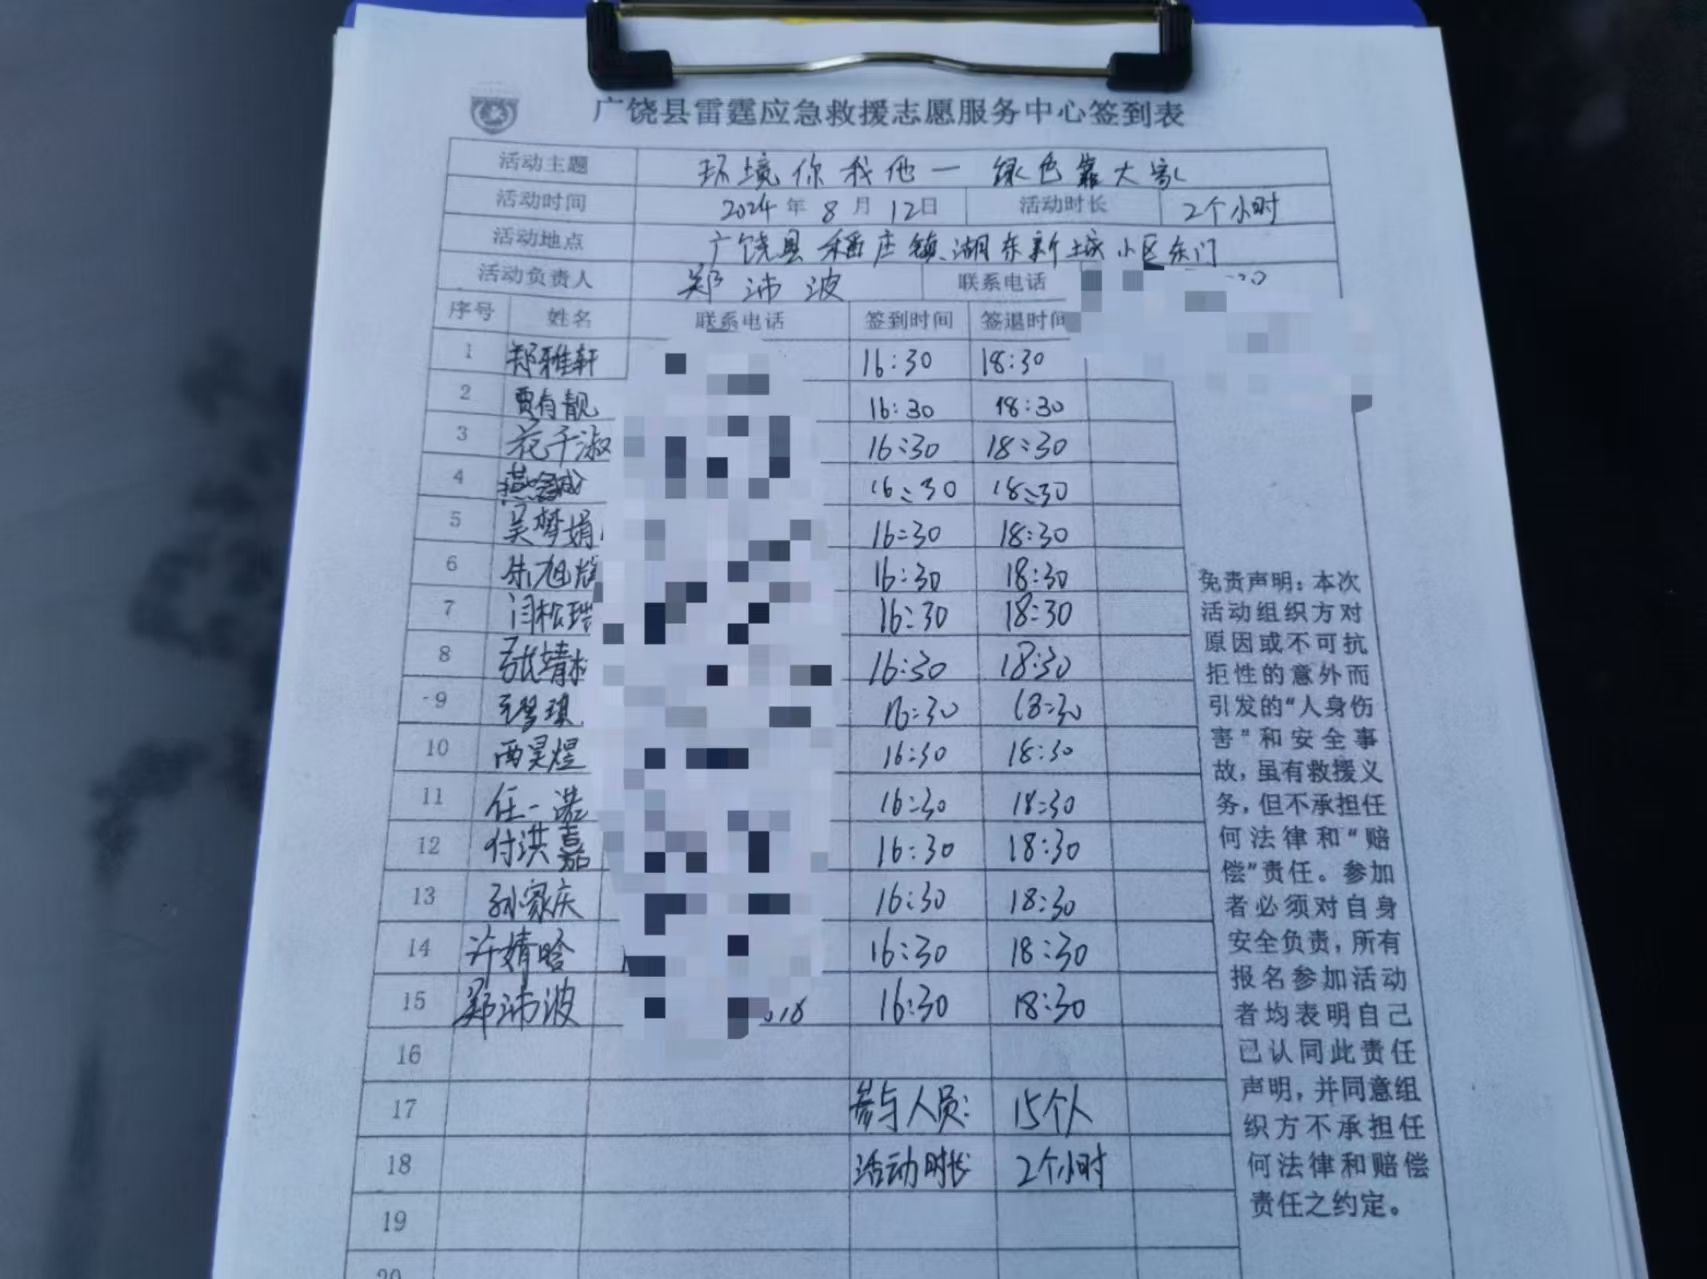 广饶县雷霆应急救援志愿服务中心签到表
活动主题 环境你我他一 绿色靠大家
活动时间 2024年8月12日 活动时长 2个小时
活动地点 广饶县稻庄镇湖东新城小区东门
活动负责人 郑沛波 联系电话
序号 姓名 联系电话 签到时间 签退时间
1 郑雅轩 16:30 18:30
2 贾有靓 16:30 18:30
3 花千淑 16:30 18:30
4 16:30 18:30
5 吴梦娟 16:30 18:30
6 朱旭 16:30 18:30
7 闫松 16:30 18:30
8 张靖 16:30 18:30
9 16:30 18:30
10 西昊煜 16:30 18:30
11 任一诺 16:30 18:30
12 付洪嘉 16:30 18:30
13 孙家庆 16:30 18:30
14 许婧晗 16:30 18:30
15 郑沛波 16:30 18:30
16
17 参与人员: 15个人
18 活动时长 2个小时
19
20
免责声明:本次
活动组织方对
原因或不可抗
拒性的意外而
引发的“人身伤
害”和安全事
故,虽有救援义
务,但不承担任
何法律和“赔
偿”责任。参加
者必须对自身
安全负责,所有
报名参加活动
者均表明自己
已认同此责任
声明,并同意组
织方不承担任
何法律和赔偿
责任之约定。